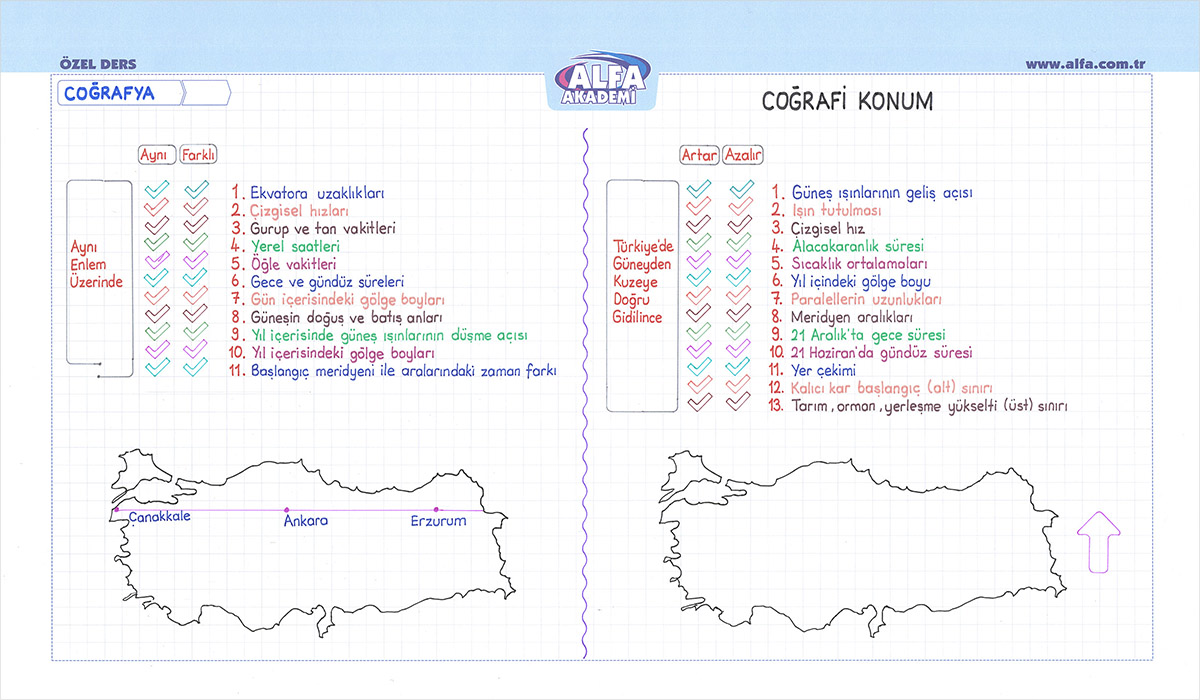 ÖZEL DERS
ALFA
AKADEMİ
www.alfa.com.tr
COĞRAFYA
COĞRAFİ KONUM
Aynı Farklı
Aynı
Enlem
Üzerinde
1. Ekvatora uzaklıkları
2. Çizgisel hızları
3. Gurup ve tan vakitleri
4. Yerel saatleri
5. Öğle vakitleri
6. Gece ve gündüz süreleri
7. Gün içerisindeki gölge boyları
8. Güneşin doğuş ve batış anları
9. Yıl içerisinde güneş ışınlarının düşme açısı
10. Yıl içerisindeki gölge boyları
11. Başlangıç meridyeni ile aralarındaki zaman farkı
Çanakkale
Ankara
Erzurum
Artar Azalır
Türkiye'de
Güneyden
Kuzeye
Doğru
Gidilince
1. Güneş ışınlarının geliş açısı
2. Işın tutulması
3. Çizgisel hız
4. Alacakaranlık süresi
5. Sıcaklık ortalamaları
6. Yıl içindeki gölge boyu
7. Paralellerin uzunlukları
8. Meridyen aralıkları
9. 21 Aralık'ta gece süresi
10. 21 Haziran'da gündüz süresi
11. Yer çekimi
12. Kalıcı kar başlangıç (alt) sınırı
13. Tarım, orman, yerleşme yükselti (üst) sınırı